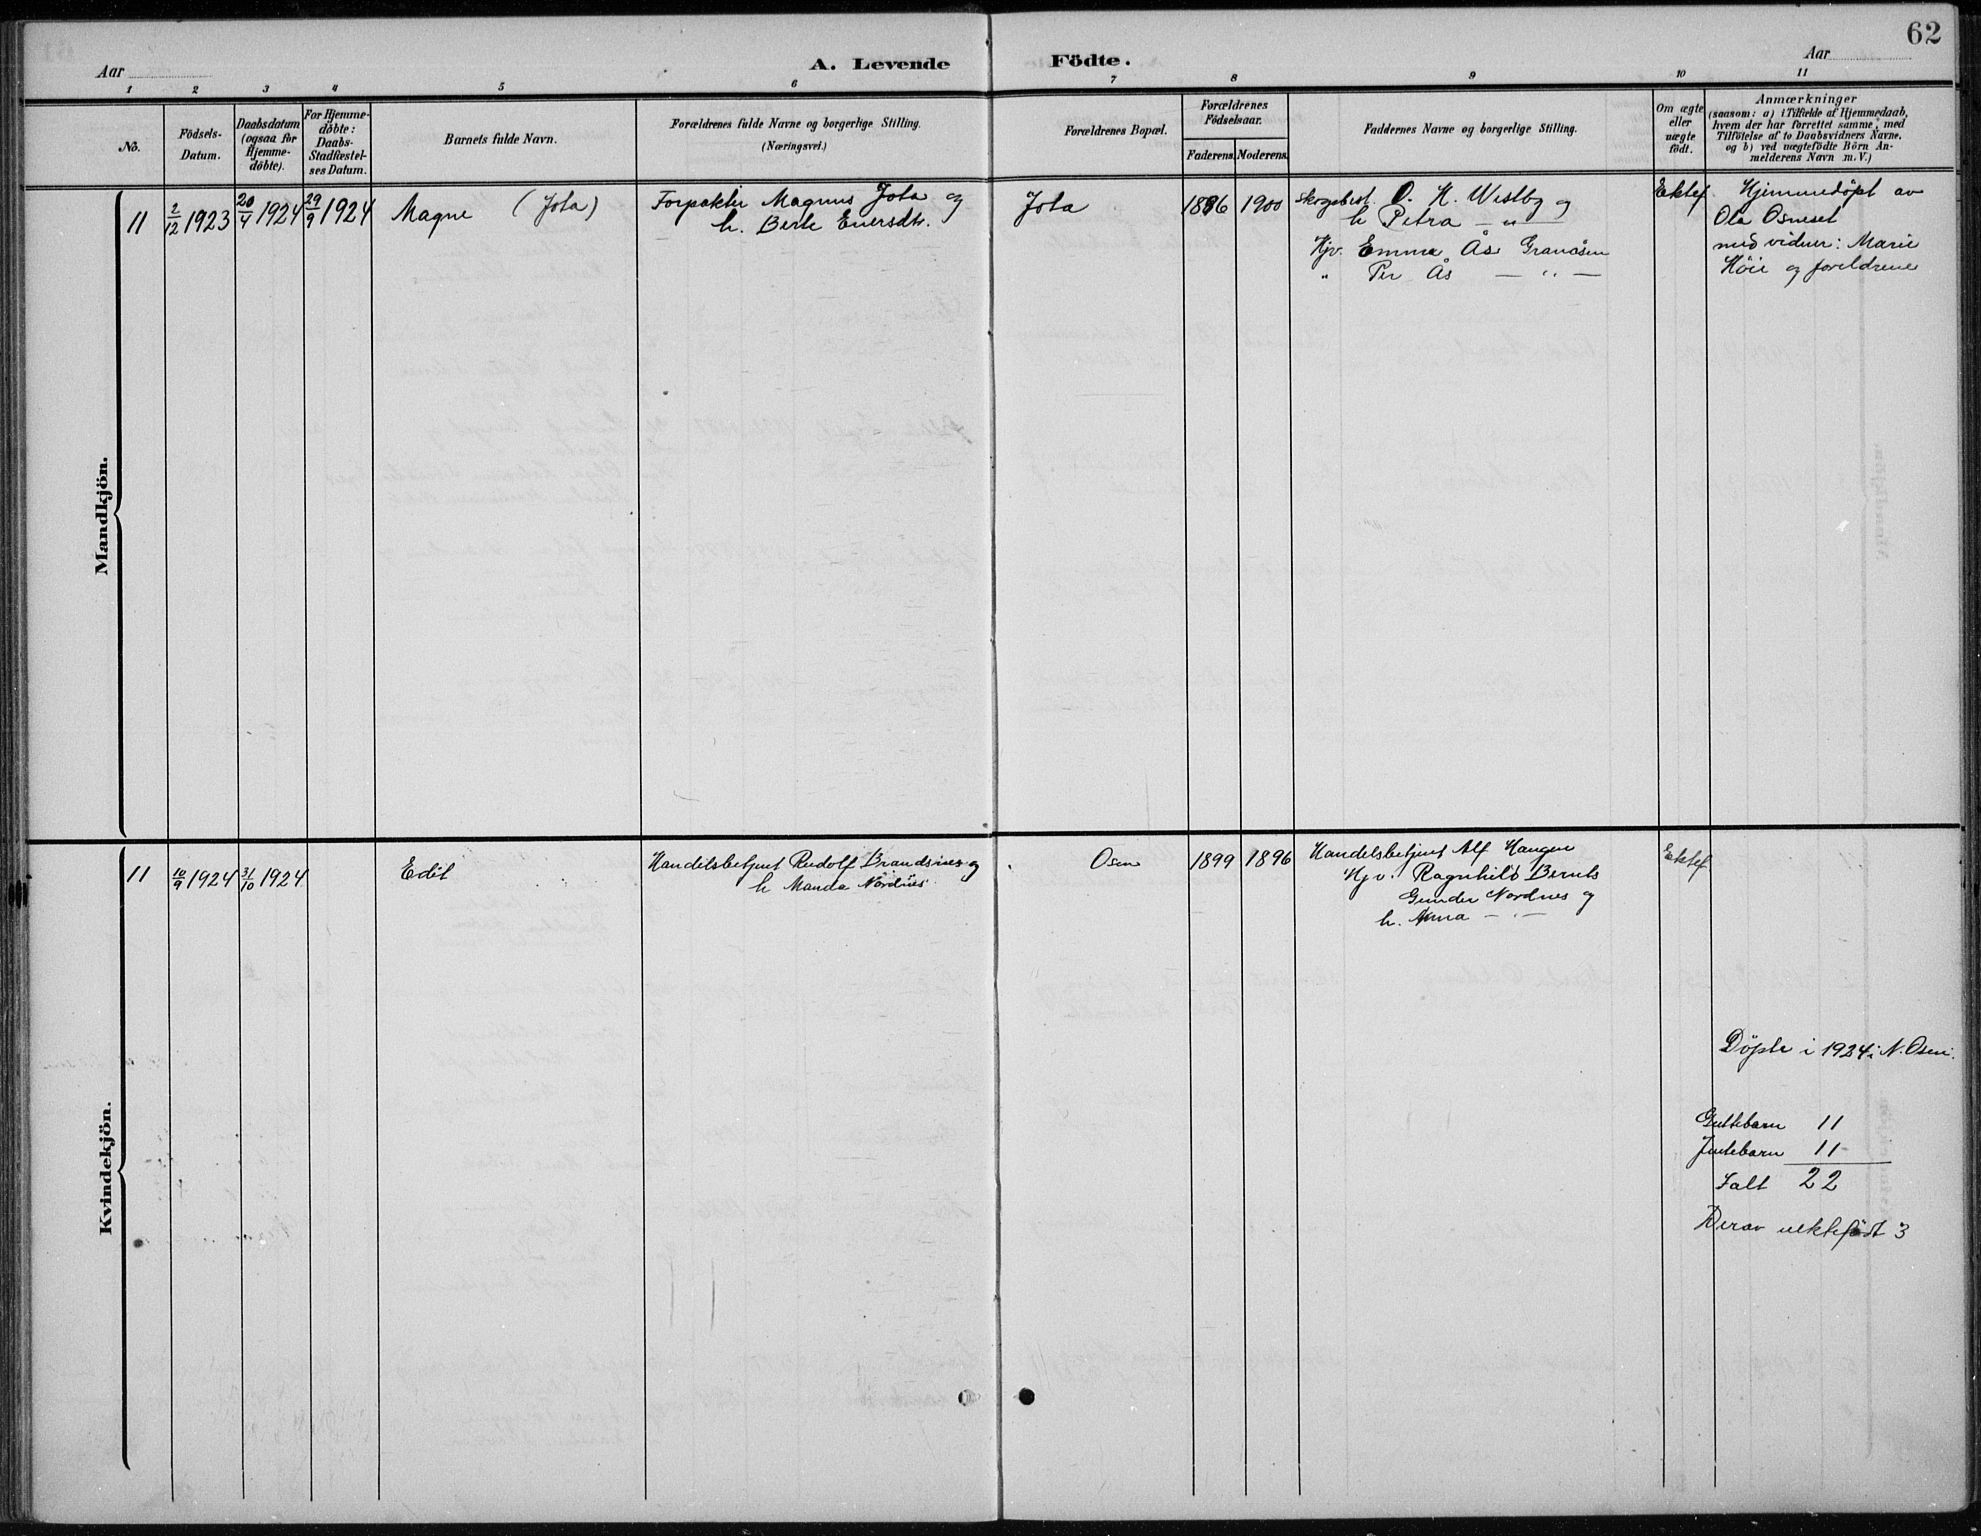 62
Aar
A. Levende Födte.
Aar
1 2 3 4 5 6 7 8 9 10 11
No.
Födsels-
Datum.
Daabsdatum
(ogsaa for
Hjemme-
döbte).
For Hjemme-
döbte:
Daabs-
Stadfæstel-
ses Datum.
Barnets fulde Navn.
Forældrenes fulde Navne og borgerlige Stilling.
(Næringsvei.)
Forældrenes Bopæl.
Forældrenes
Födselsaar.
Faderens. Moderens.
Faddernes Navne og borgerlige Stilling.
Om ægte
eller
uægte
födt.
Anmærkninger
(saasom: a) i Tilfælde af Hjemmedaab,
hvem der har forrettet samme, med
Tilföielse af to Daabsvidners Navne,
og b) ved uægtefödte Börn An-
melderens Navn m. V.)
Mandkjön.
11 2/12 1923 20/4 1924 29/9 1924 Magne (Jota)
Forpakter Magnus Jota og
h. Berte Enersdtr.
Jota 1896 1900
Skogsbest. O. K. Westby og
h Petra — " —
Hjv. Emma Ås Granåsen
" Per Ås — " —
Ektef.
Hjemmedøpt av
Ola Osneset
med vidner: Marie
Höie og foreldrene
Kvindekjön.
11 10/9 1924 31/10 1924 Edit
Handelsbetjent Rudolf Brandsnes og
h Manda Nordnes
Osen 1899 1896
Handelsbetjent Alf Haugen
Hjv. Ragnhild Bernts
Gunder Nordnes og
h. Anna — " —
Ektef.
Döpte i 1924 i N. Osen.
Guttebarn 11
Jentebarn 11
Ialt 22
Derav uektefödt 3